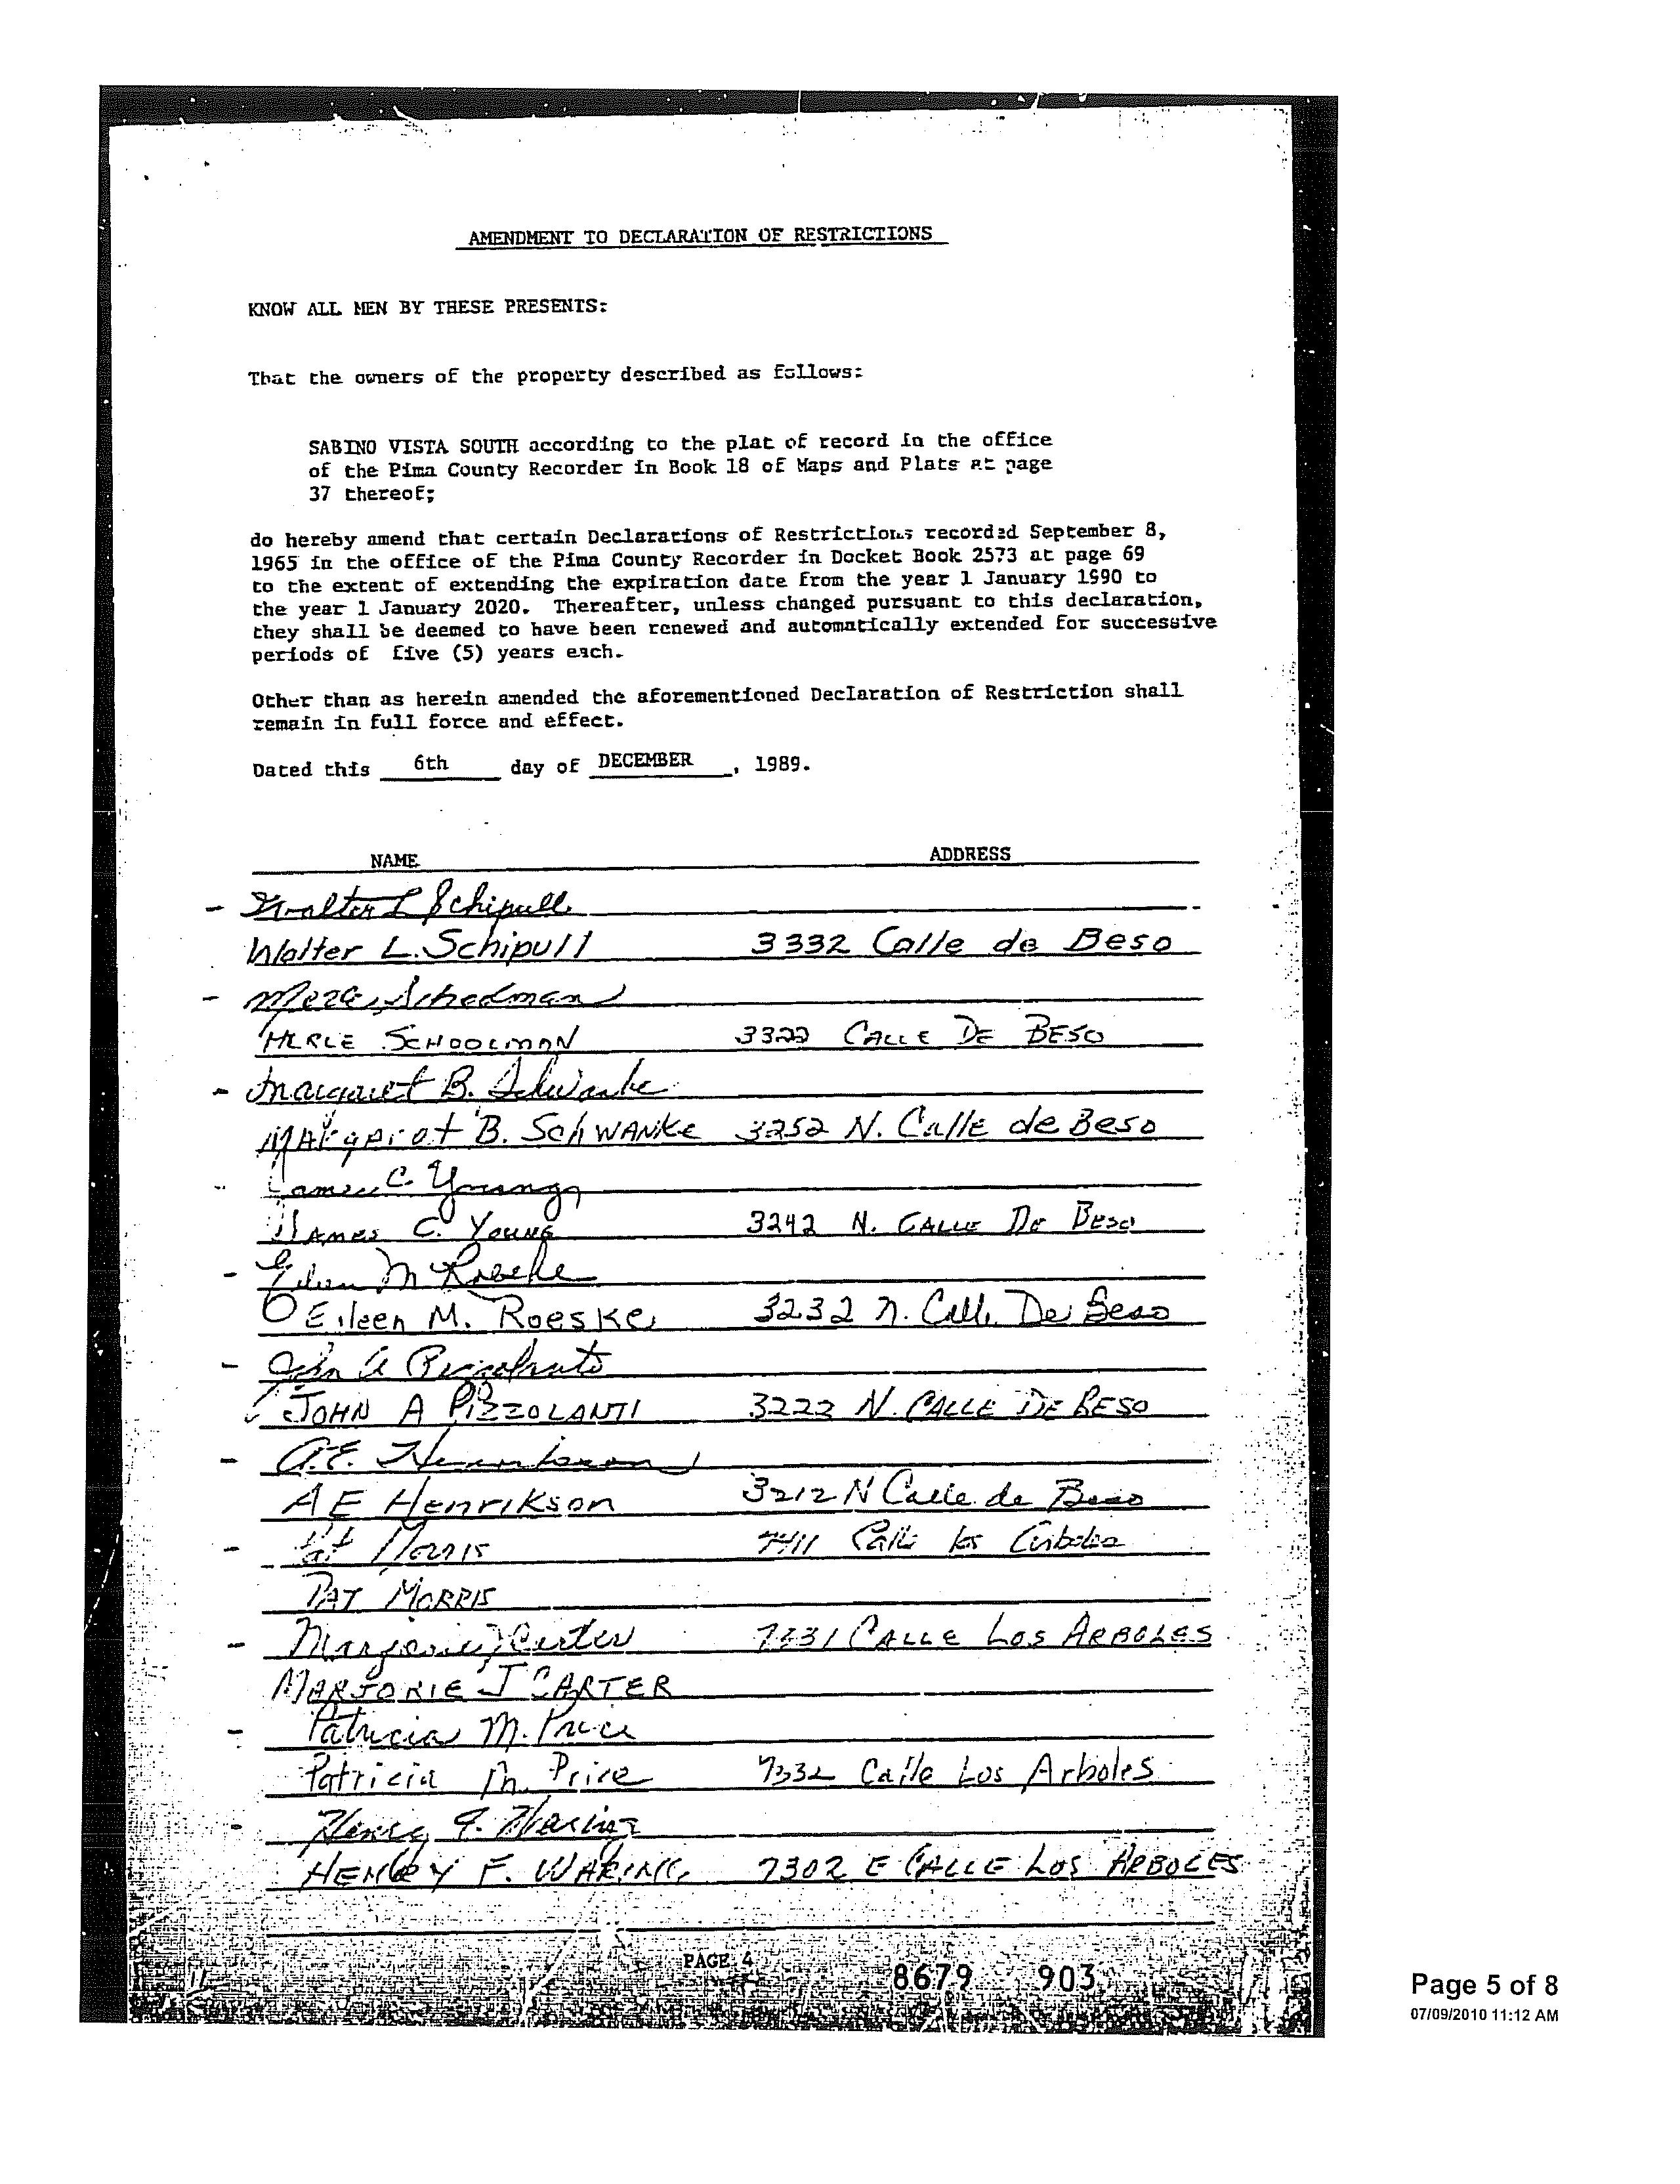 AMENDMENT TO DECLARATION OF RESTRICTIONS
KNOW ALL MEN BY THESE PRESENTS:
That the owners of the property described as follows:
SABINO VISTA SOUTH according to the plat of record in the office
of the Pima County Recorder in Book 18 of Maps and Plats at page
37 thereof;
do hereby amend that certain Declarations of Restrictions recorded September 8,
1965 in the office of the Pima County Recorder in Docket Book 2573 at page 69
to the extent of extending the expiration date from the year 1 January 1990 to
the year 1 January 2020. Thereafter, unless changed pursuant to this declaration,
they shall be deemed to have been renewed and automatically extended for successive
periods of five (5) years each.
Other than as herein amended the aforementioned Declaration of Restriction shall
remain in full force and effect.
Dated this 6th day of DECEMBER, 1989.
NAME ADDRESS
- Walter L Schipull
Walter L. Schipull 3332 Calle de Beso
- Merle Schoolman
MERLE SCHOOLMAN 3322 CALLE DE BESO
- Margaret B. Schwanke
MArgaret B. SchWANKe 3252 N. Calle de Beso
- James C. Young
JAMES C. YOUNG 3242 N. CALLE DE BESO
- Eileen M Roeske
Eileen M. Roeske 3232 N. Calle De Beso
- John A Pizzolanti
JOHN A PIZZOLANTI 3222 N. CALLE DE BESO
- A.E. Henrikson
A E Henrikson 3212 N Calle de Beso
- Pat Morris 7411 Calle los Arboles
PAT MORRIS
- Marjorie J Carter CALLE LOS ARBOLES
MARJORIE J CARTER
- Patricia M. Price
Patricia M. Price 7332 Calle Los Arboles
- Henry F. Waring
HENRY F. WARING 7302 E CALLE LOS ARBOLES
PAGE 4
8679 903
Page 5 of 8
07/09/2010 11:12 AM